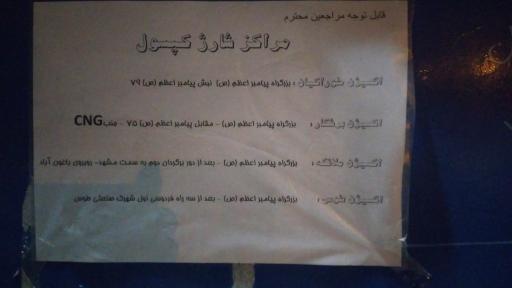 قابل توجه مراجعین محترم
مراکز شارژ کپسول
اکسیژن خوراکیان : بزرگراه پیامبر اعظم (ص) نبش پیامبر اعظم (ص) ۷۹
اکسیژن برنگار : بزرگراه پیامبر اعظم (ص) - مقابل پیامبر اعظم (ص) ۷۵ - جنب CNG
اکسیژن ملائک : بزرگراه پیامبر اعظم (ص) - بعد از دور برگردان دوم به سمت مشهد- روبروی باغون آباد
اکسیژن طوس : بزرگراه پیامبر اعظم (ص) - بعد از سه راه فردوسی اول شهرک صنعتی طوس